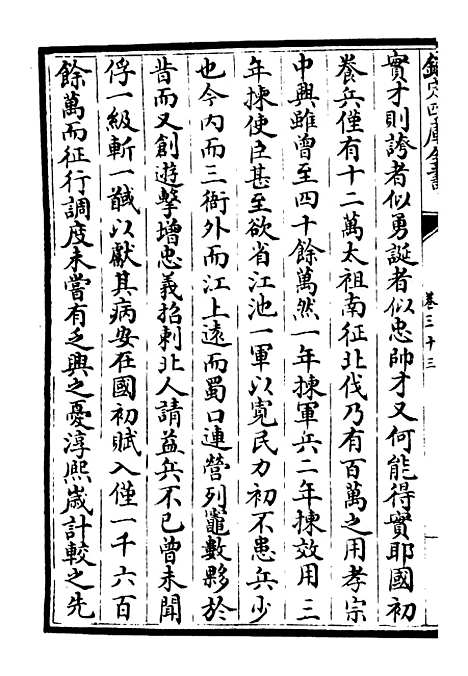 欽定四庫全書
卷三十三
實才則誇者似勇誕者似忠帥才又何能得實耶國初
養兵僅有十二萬太祖南征北伐乃有百萬之用孝宗
中興雖曾至四十餘萬然一年揀軍兵二年揀效用三
年揀使臣甚至欲省江池一軍以寬民力初不患兵少
也今内而三衙外而江上遠而蜀口連營列竈數夥於
昔而又創遊擊增忠義招刺北人請益兵不已曾未聞
俘一級斬一馘以獻其病安在國初賦入僅一千六百
餘萬而征行調度未嘗有乏興之憂淳熙嵗計較之先